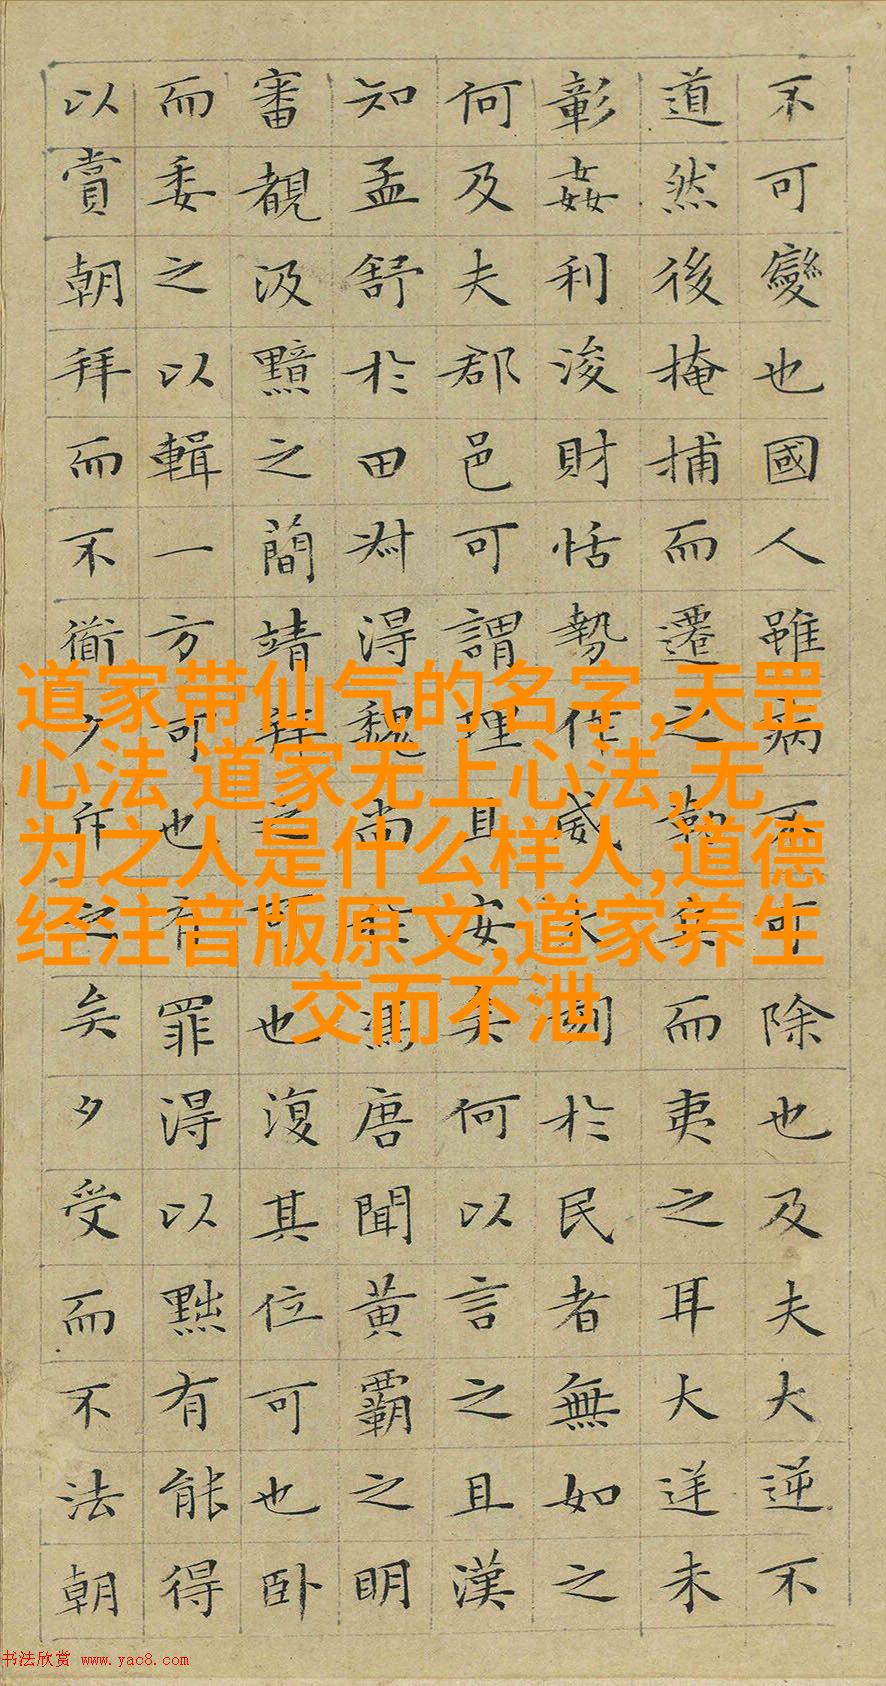 不可變也國人雖病不可除也及夫大逆不
道然後掩捕而遷之勒兵而夷之耳大逆未
彰姦利浚財恬勢作威大刻於民者無如之
何及夫郡邑可謂理且安矣何以言之且漢
知孟舒於田叔得魏尚於馮唐聞黃霸之明
審覩汲黯之簡靖拜之可也復其位可也卧
而委之以輯一方可也有罪得以黜有能得
以賞朝拜而不道夕斥之矣夕受而不法朝
道家带仙气的名字,天罡
心法 道家无上心法,无
为之人是什么样人,道德
经注音版原文,道家养生
交而不泄
书法欣赏 www.yac8.com